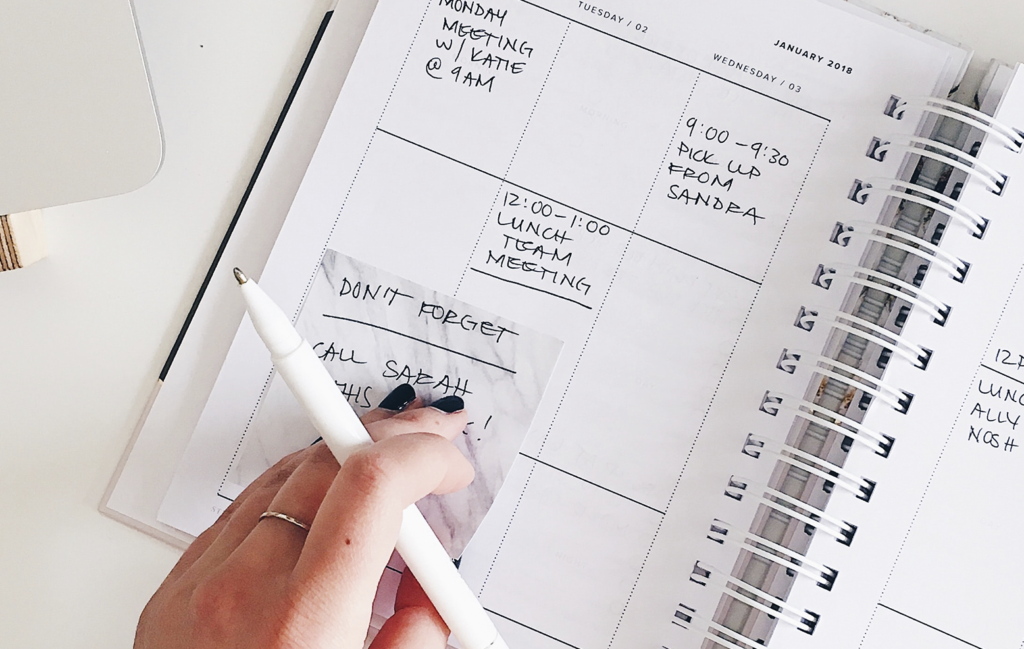 JANUARY 2018
MONDAY
MEETING
W/ KATIE
@ 9AM
TUESDAY / 02
12:00-1:00
LUNCH
TEAM
MEETING
WEDNESDAY / 03
9:00-9:30
PICK UP
FROM
SANDRA
DON'T FORGET
CALL SARAH
THIS
!
ALLY
NOSH